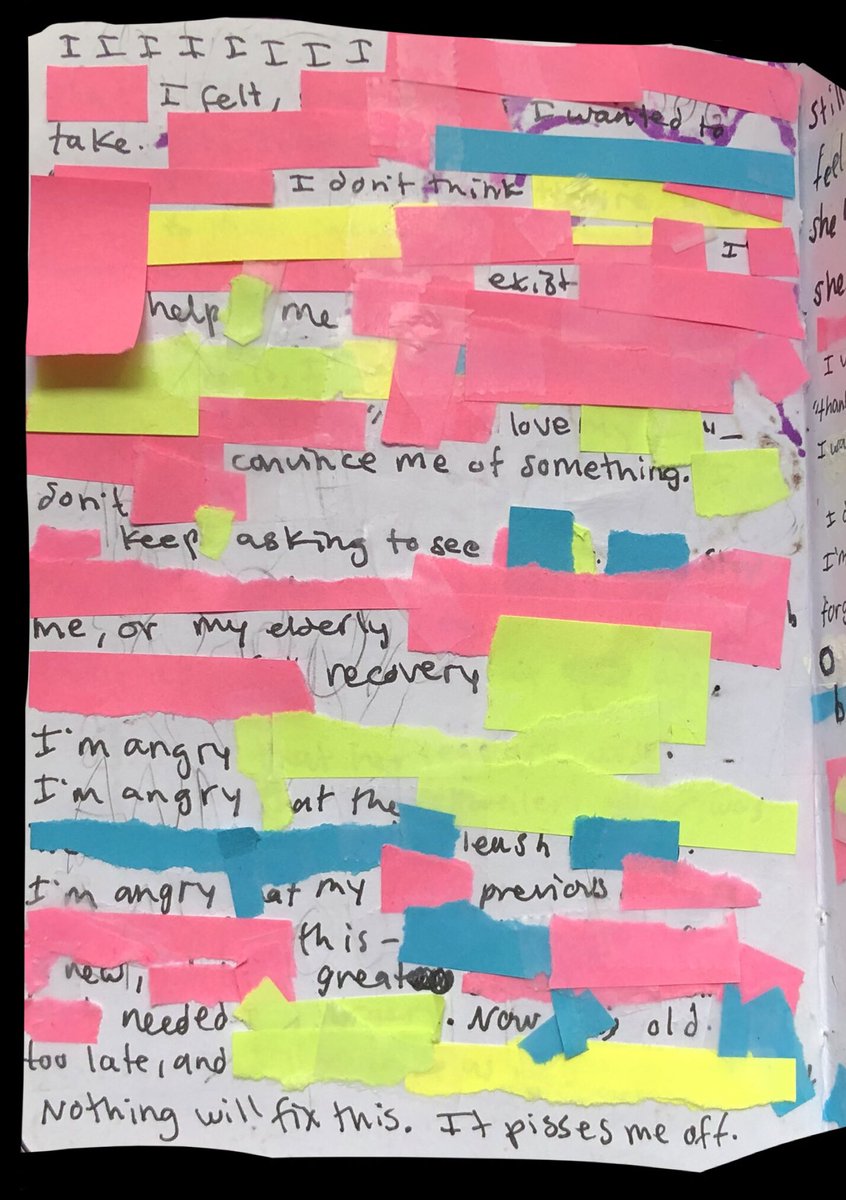 I I I I I I I I
I felt,
I wanted to
take.
I don't think
I
exist
help me
love
convince me of something.
don't
keep asking to see
me, or my elderly
recovery
I'm angry
I'm angry at the
leash
I'm angry at my previous
this-
new, great
needed. Now, old.
too late, and
Nothing will fix this. It pisses me off.
still
feel
she
she